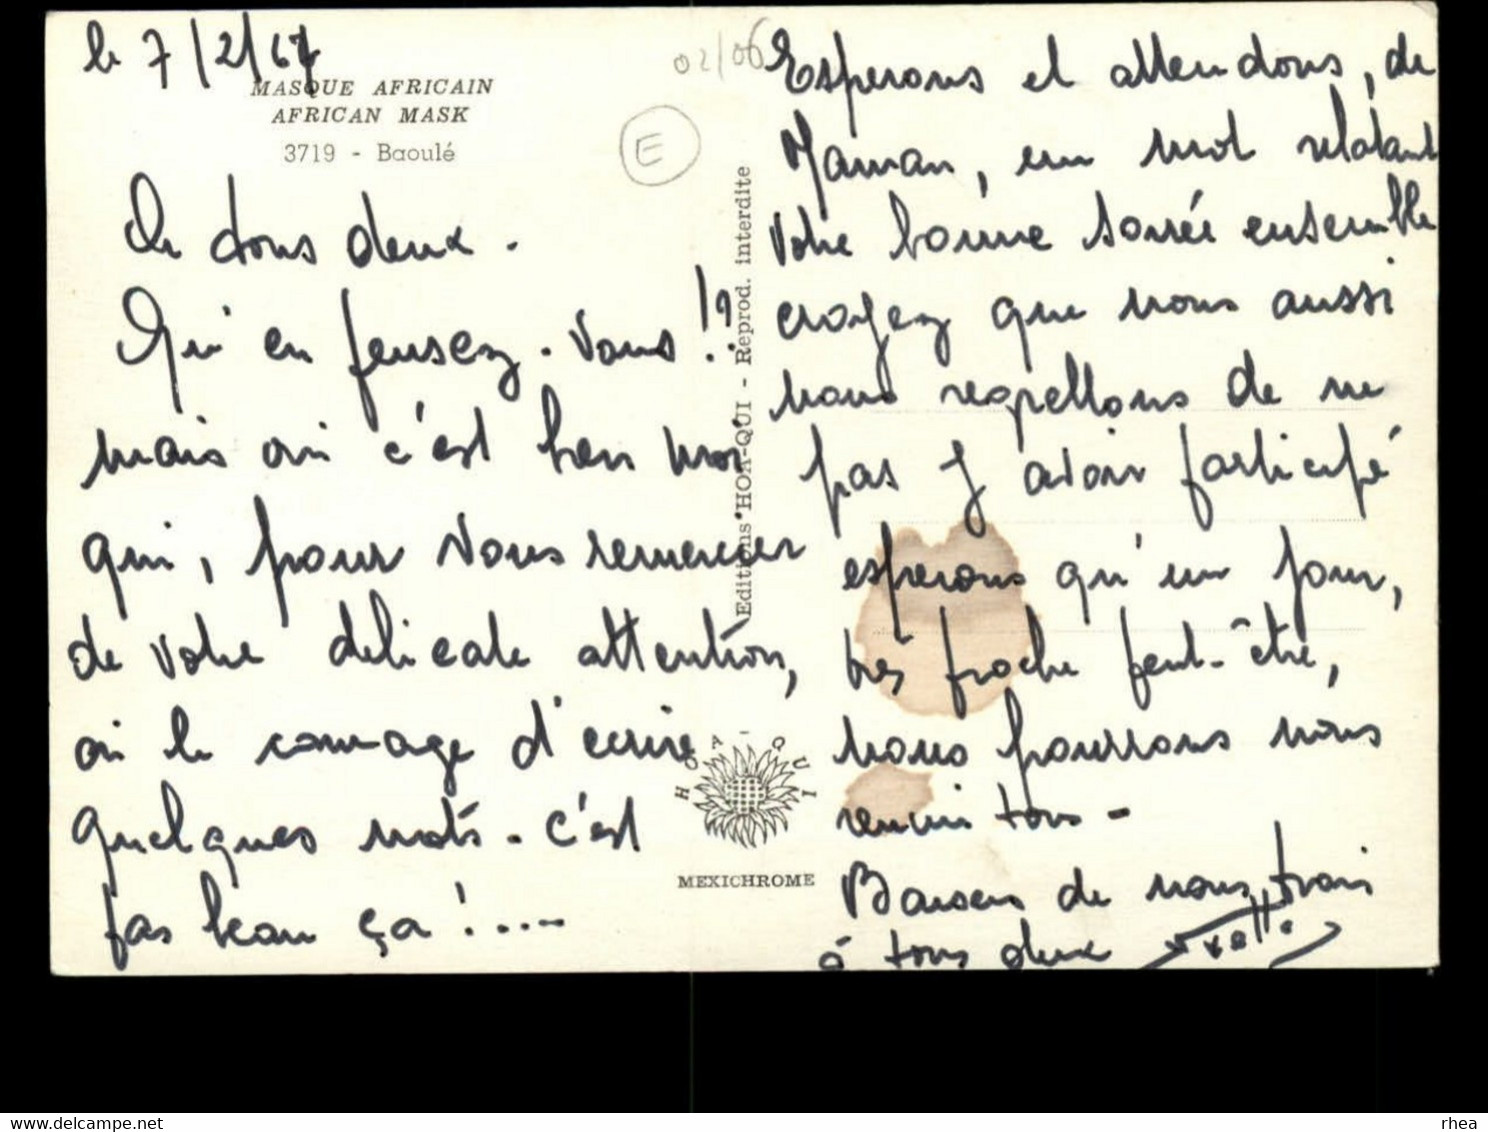 le 7/2/67
MASQUE AFRICAIN
AFRICAN MASK
3719 - Baoulé
02/06
E
à tous deux.
Qui en pensez-vous!?
mais oui c'est bien moi
qui, pour vous remercier
de votre délicate attention,
ai le courage d'écrire
quelques mots. C'est
pas beau ça!....
Editions HOA-QUI - Reprod. interdite
HOA-QUI
MEXICHROME
Esperons et attendons, de
Maman, un mot relatant
votre bonne soirée ensemble
croyez que nous aussi
nous regrettons de ne
pas y avoir participé
esperons qu'un jour,
très proche peut-être,
nous pourrons nous
réunir tous -
Baisers de nous trois
à tous deux
rhea
www.delcampe.net